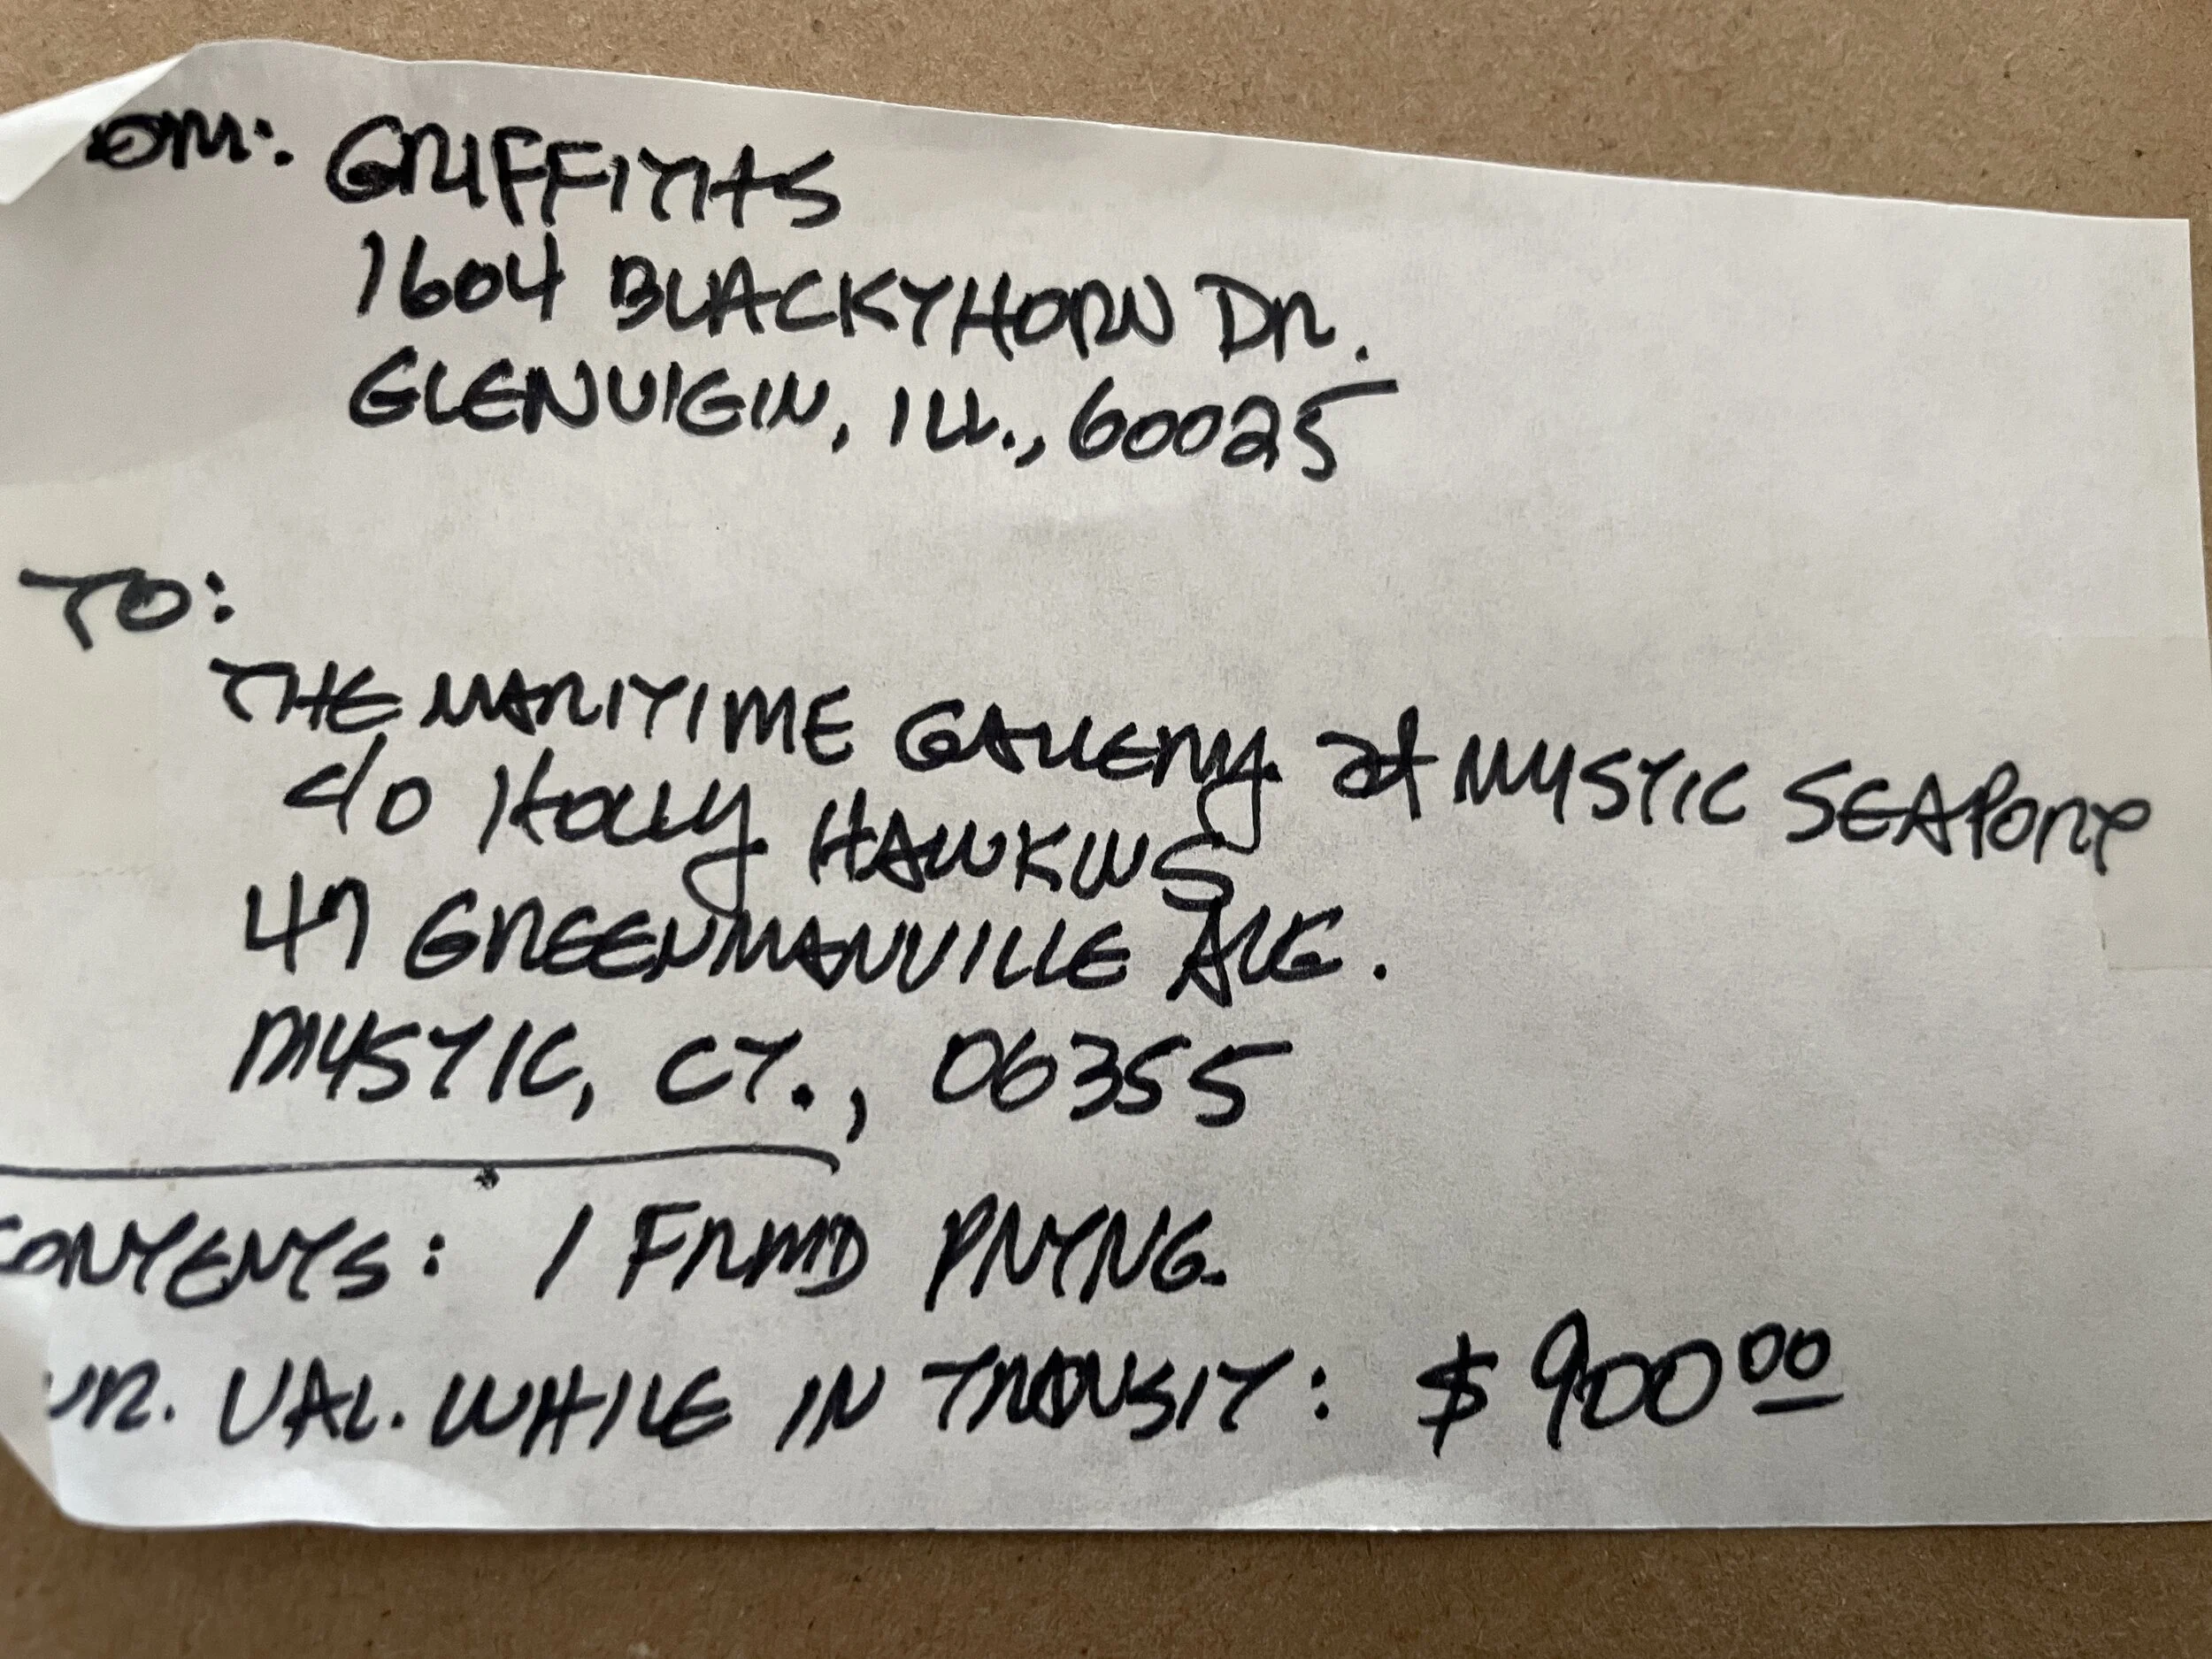 OM: GRIFFITHS
1604 BLACKTHORN DR.
GLENVIEW, ILL., 60025
TO:
THE MARITIME GALLERY at MYSTIC SEAPORT
c/o HOLLY HAWKINS
47 GREENMANVILLE AVE.
MYSTIC, CT., 06355
CONTENTS: 1 FRMD PNTNG.
UR. VAL. WHILE IN TRANSIT: $900 00